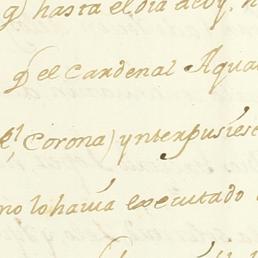 q) hasta el dia de oy,
q) el Cardenal Aqua
Rl Corona) ynterpusiese
no lo havia executado